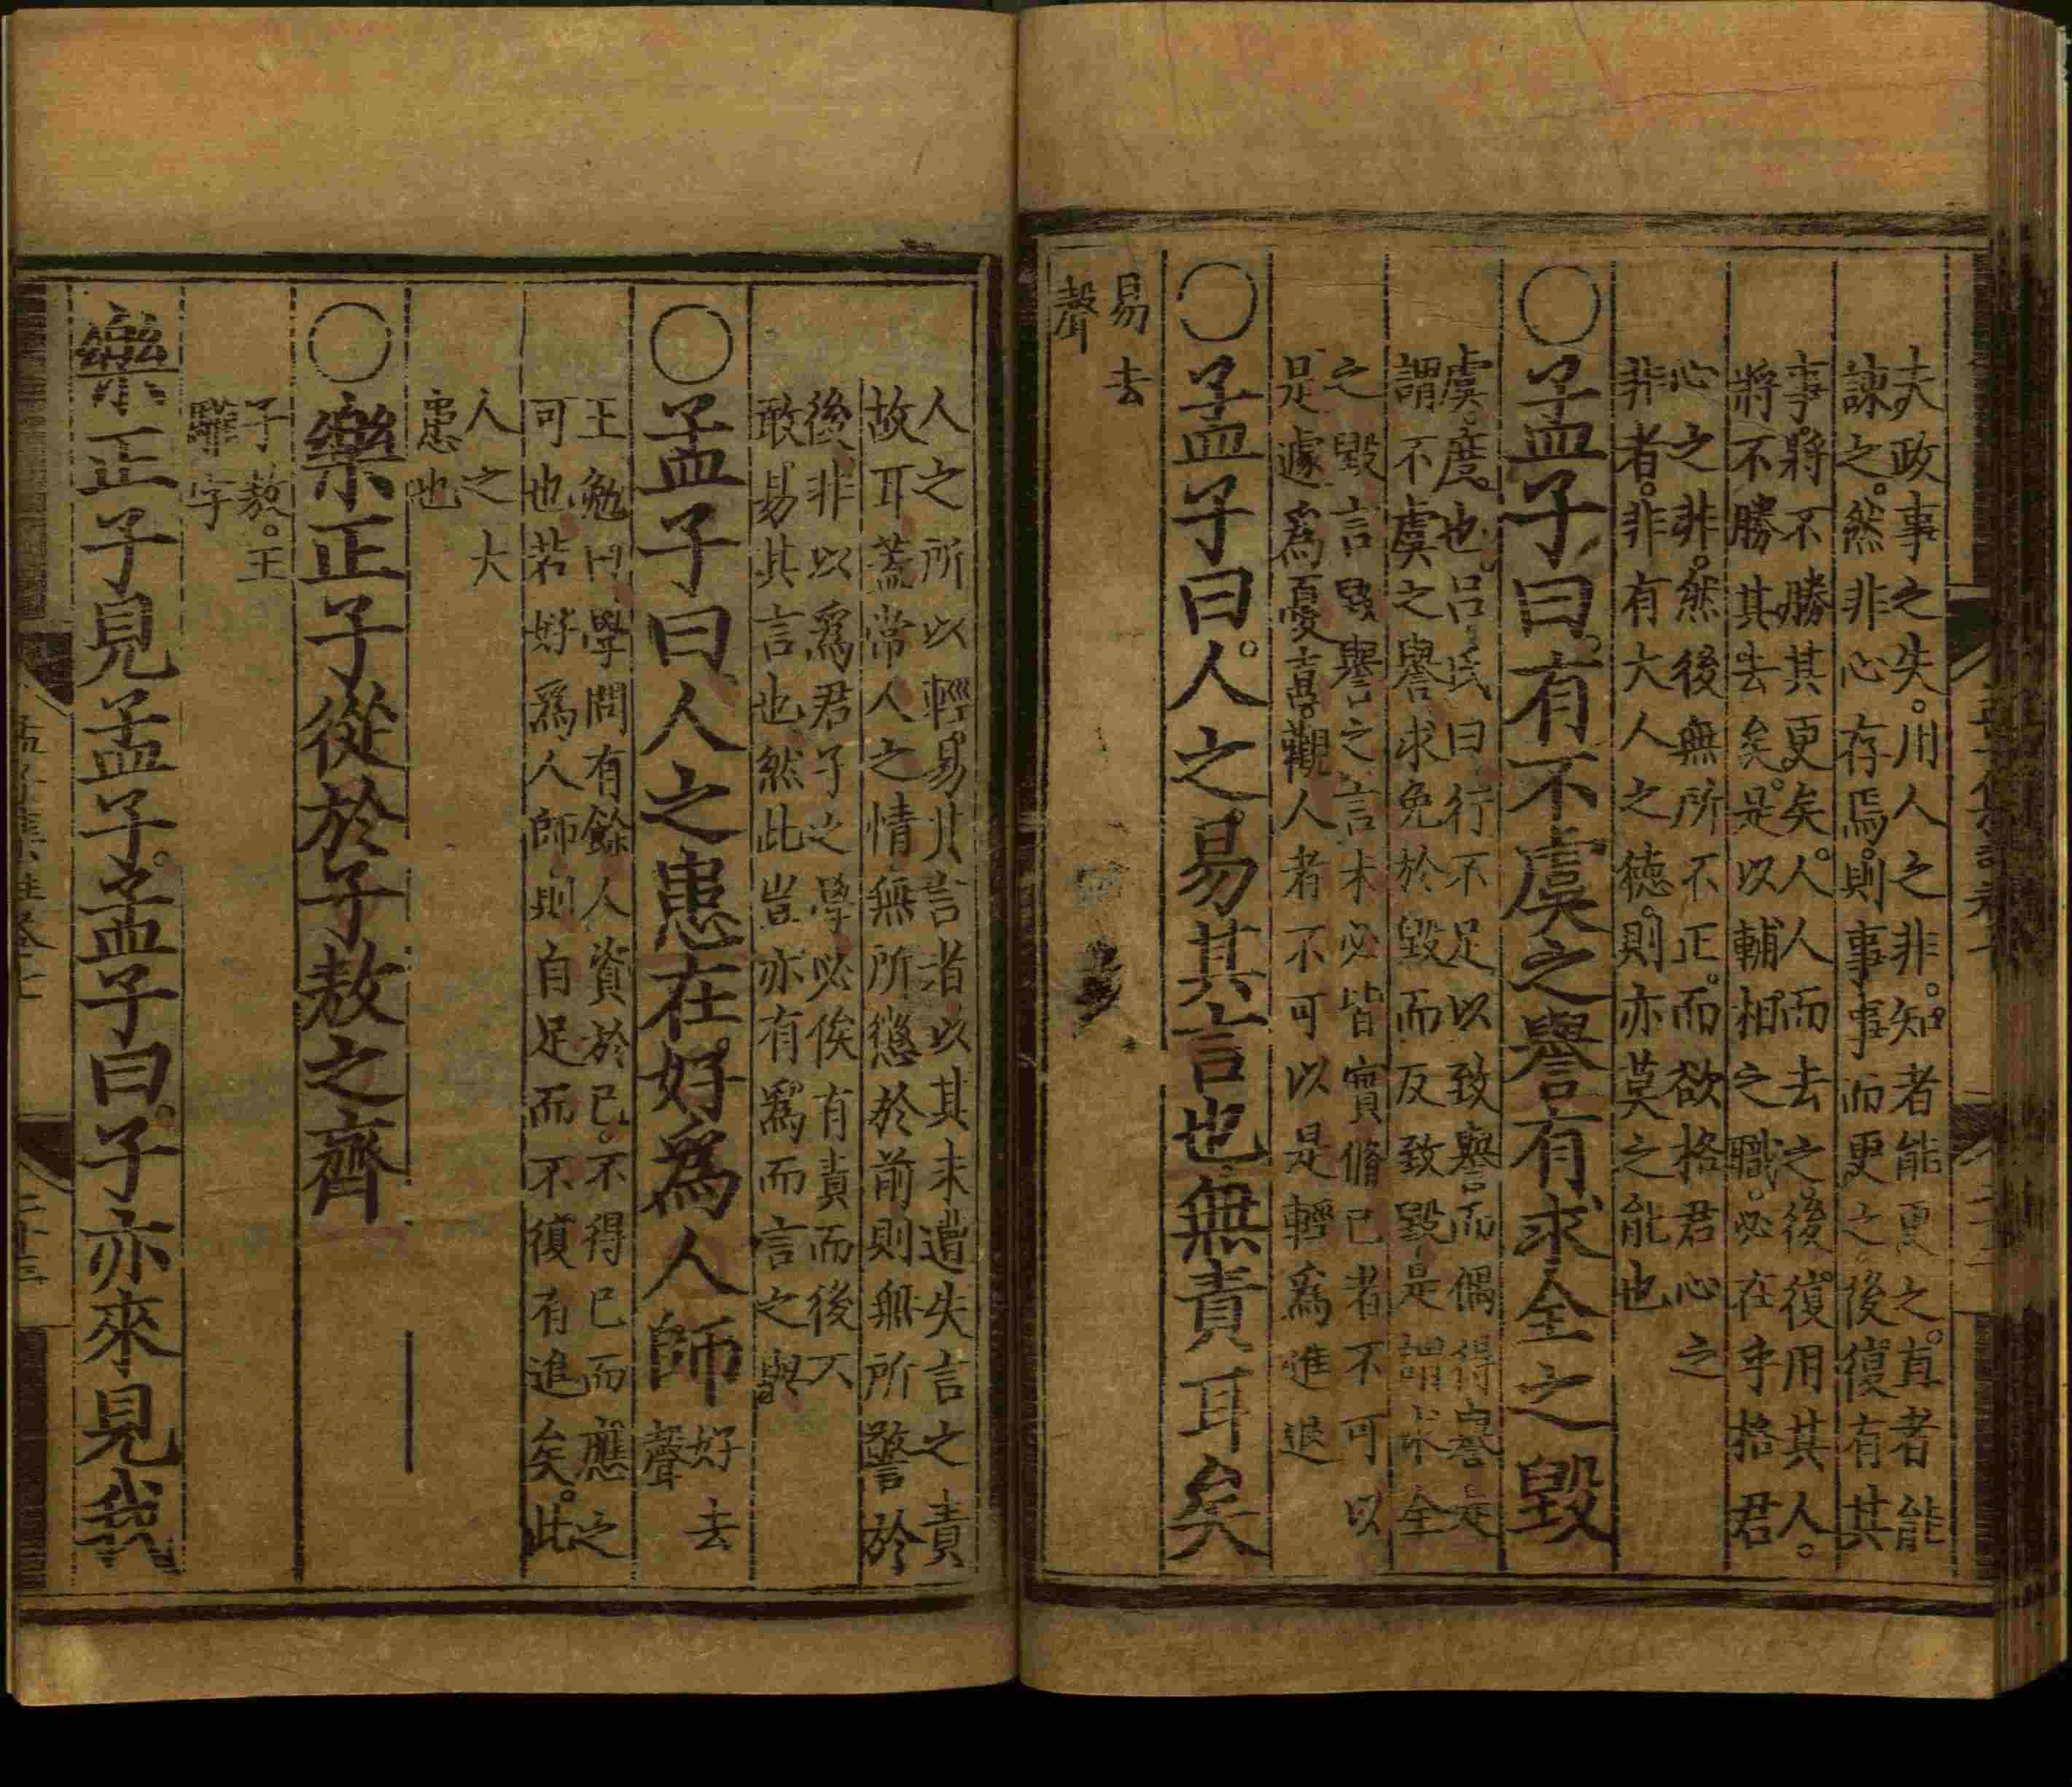 夫政事之失。用人之非。知者能更之。直者能
諫之。然非心存焉。則事事而更之。後復有其
事。將不勝其更矣。人人而去之後。復用其人。
將不勝其去矣。是以輔相之職。必在乎格君
心之非。然後無所不正。而欲格君心之
非者。非有大人之德。則亦莫之能也
○孟子曰。有不虞之譽有求全之毀
虞。度。也。呂氏曰行不足以致譽而偶得譽是
謂不虞之譽求免於毀而反致毀是謂求全
之毀言毀譽之言未必皆實脩己者不可以
是遽爲憂喜。觀人者不可以是輕爲進退
○孟子曰。人之易其言也無責耳矣
易去
聲
人之所以輕易其言者以其未遭失言之責
故耳蓋常人之情無所懲於前則無所警於
後非以爲君子之學必俟有責而後不
敢易其言也然此豈亦有爲而言之與
○孟子曰人之患在好爲人師好去
聲
王勉曰學問有餘人資於己。不得已而應之
可也若好爲人師則自足而不復有進矣。此
人之大
患也
○樂正子從於子敖之齊
子敖。王
驩字
樂正子見孟子。孟子曰。子亦來見我